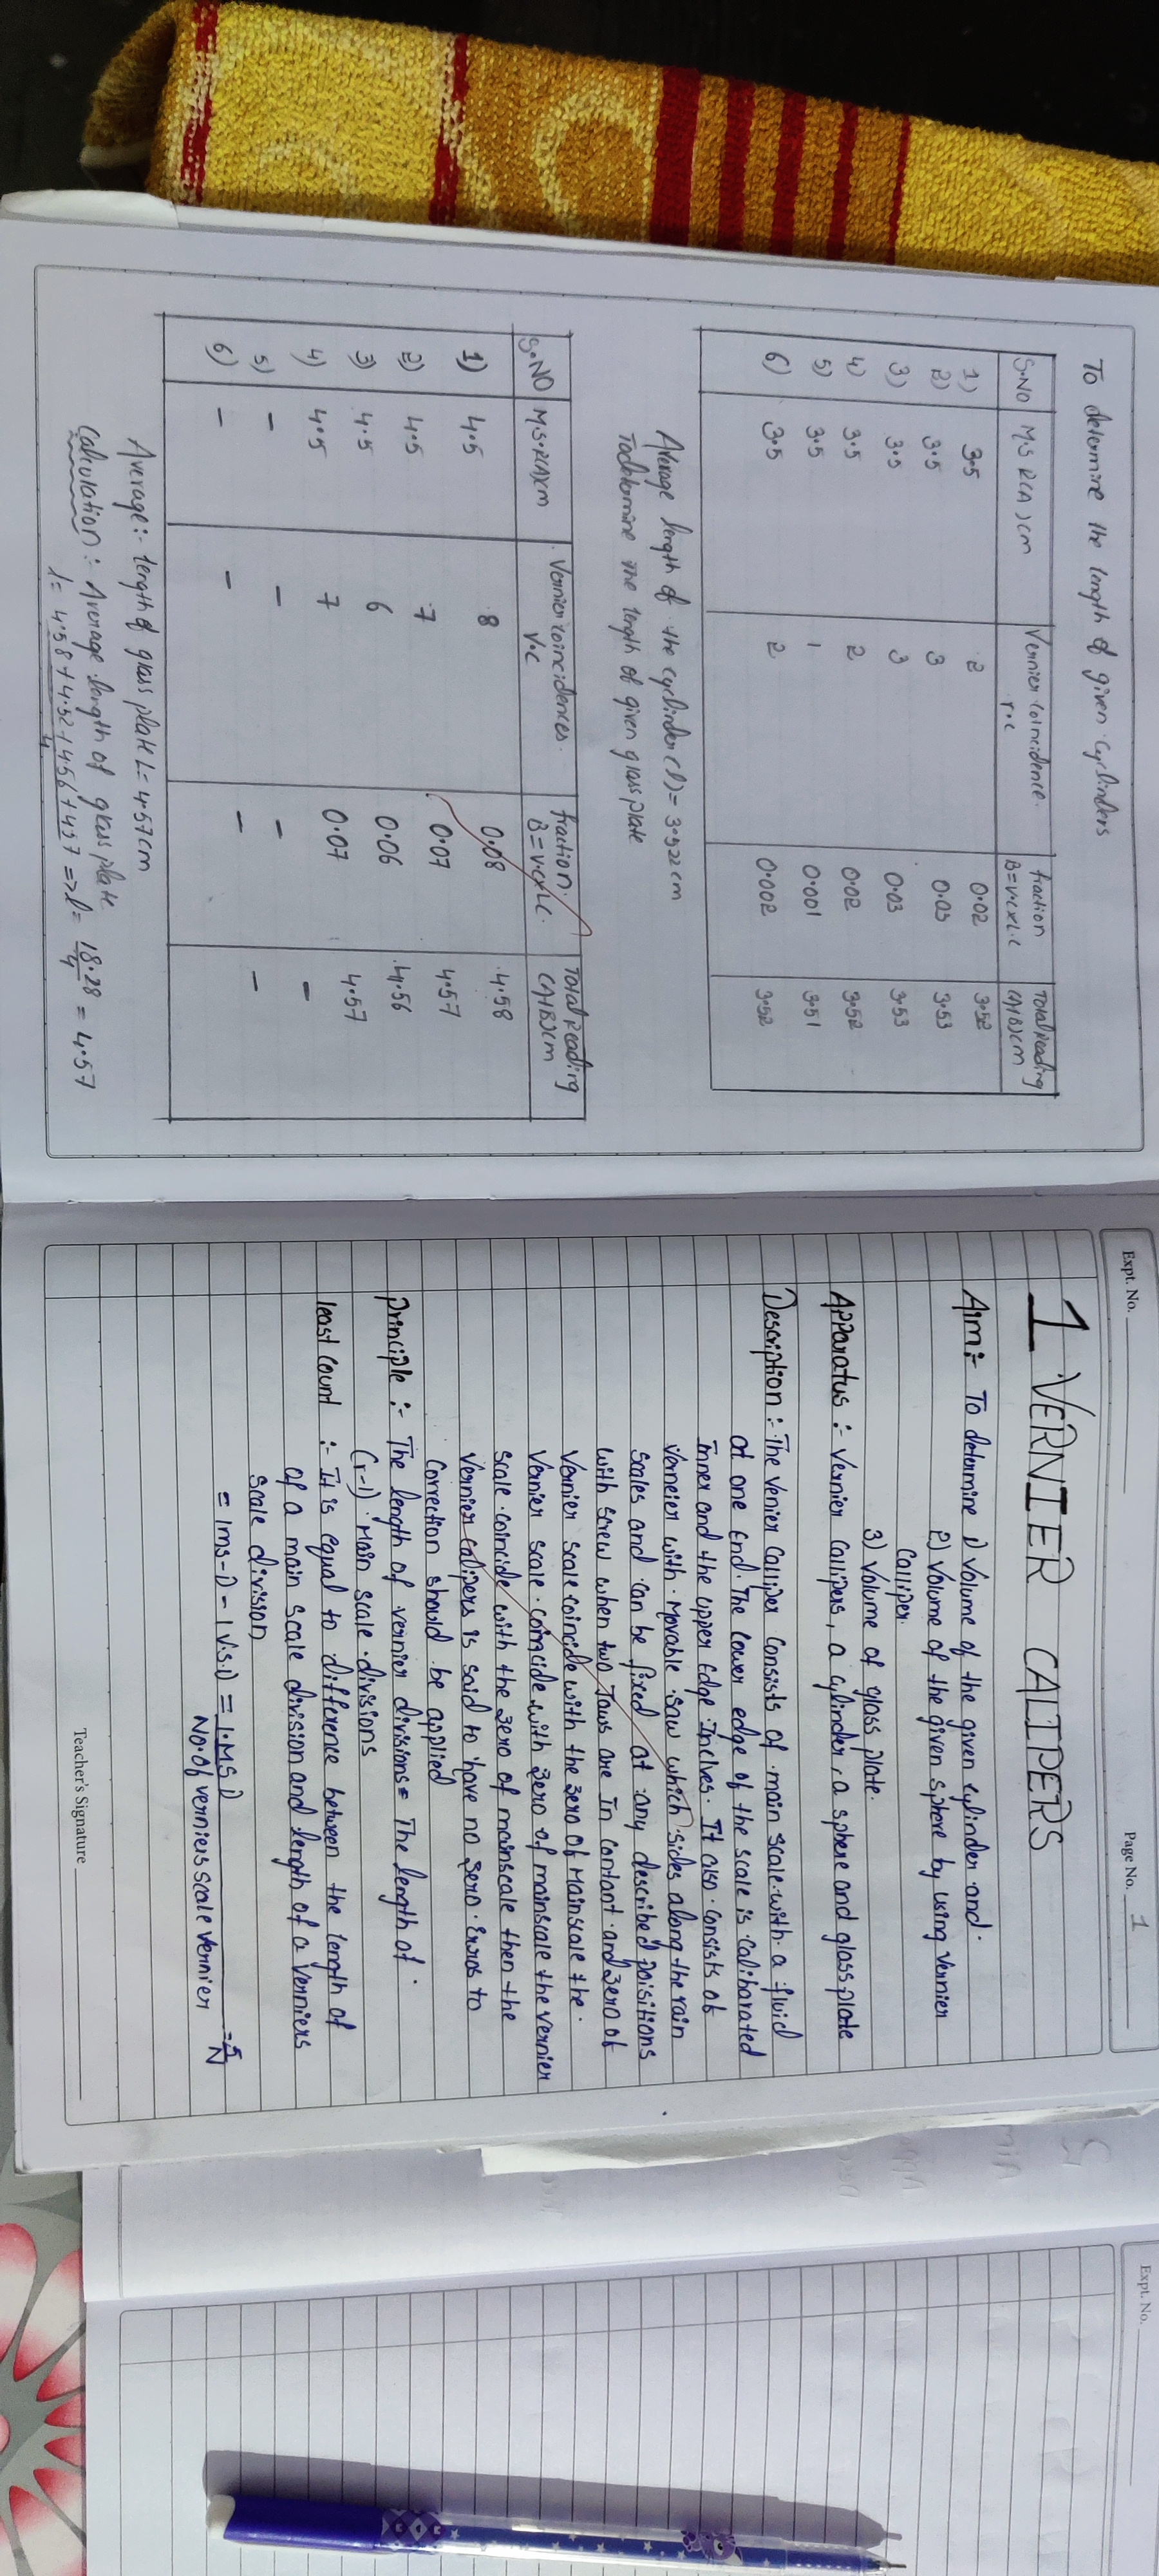 To determine the length of given cyclinders
S.NO M.S R(A) cm Vernier Coincidence. v.c fraction B=v.cxL.c Total Reading (A+B)cm
1) 3.5 2 0.02 3.52
2) 3.5 3 0.03 3.53
3) 3.5 3 0.03 3.53
4) 3.5 2 0.02 3.52
5) 3.5 1 0.001 3.51
6) 3.5 2 0.002 3.52
Average length of the cyclinder (l) = 3.522 cm
To determine the length of given glass plate
S.NO M.S.R(A)cm Vernier coincidences. V.C fraction. B=v.cxL.C. Total Reading (A+B)cm
1) 4.5 8 0.08 4.58
2) 4.5 7 0.07 4.57
3) 4.5 6 0.06 4.56
4) 4.5 7 0.07 4.57
5) - - - -
6) - - - -
Average:- length of glass plate L = 4.57cm
Calculation : Average length of glass plate
l = 4.58+4.52+4.56+4.57 / 4 => l = 18.28/4 = 4.57
Expt. No. Page No. 1
1 VERNIER CALIPERS
Aim:- To determine 1) Volume of the given cylinder and.
2) Volume of the given sphere by using vernier
Calliper.
3) Volume of glass plate.
Apparatus :- Vernier Callipers, a cylinder, a sphere and glass plate
Description : The Venier Calliper Consists of main scale with a fluid
at one End. The lower edge of the scale is Caliharated
Inner and the upper Edge Inclves. It also consists of
Verneier with Movable saw which sides along the rain
scales and can be fixed at any described poisitions
with screw when two Jaws are in contant and zero of
Vernier scale coincide with the zero of Mainscale the.
Vernier scale coincide with zero of mainscale the vernier
scale coincide with the zero of mainscale then the
Vernier Calipers is said to have no zero. Enros to
Correction should be applied
principle :- The length of vernier divisions = The length of.
(r-1) Main scale divisions
least count :- It is equal to difference between the length of
of a main scale division and length of a verniers
scale division
= 1ms-1) - 1 v.s.1) = 1.MS 1) / No. Of verniers scale vernier = S/N
Teacher's Signature
Expt. No.